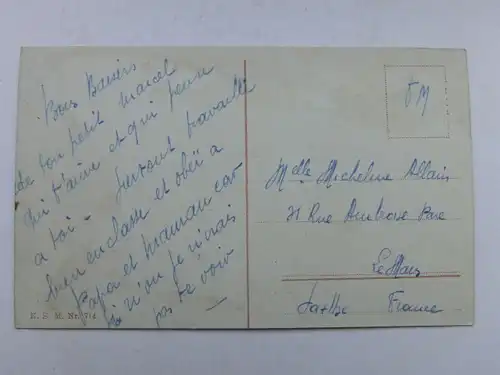 Bons Baisers
de ton petit Marcel
qui t'aime et qui pense
a toi - Surtout travaille
bien en classe et obéï a
Papa et Maman car
si non je n'irais
pas te voir
K. S. M. Nr. 714
F M
Melle Micheline Allain
71 Rue Ambroise Paré
Le Mans
Sarthe France